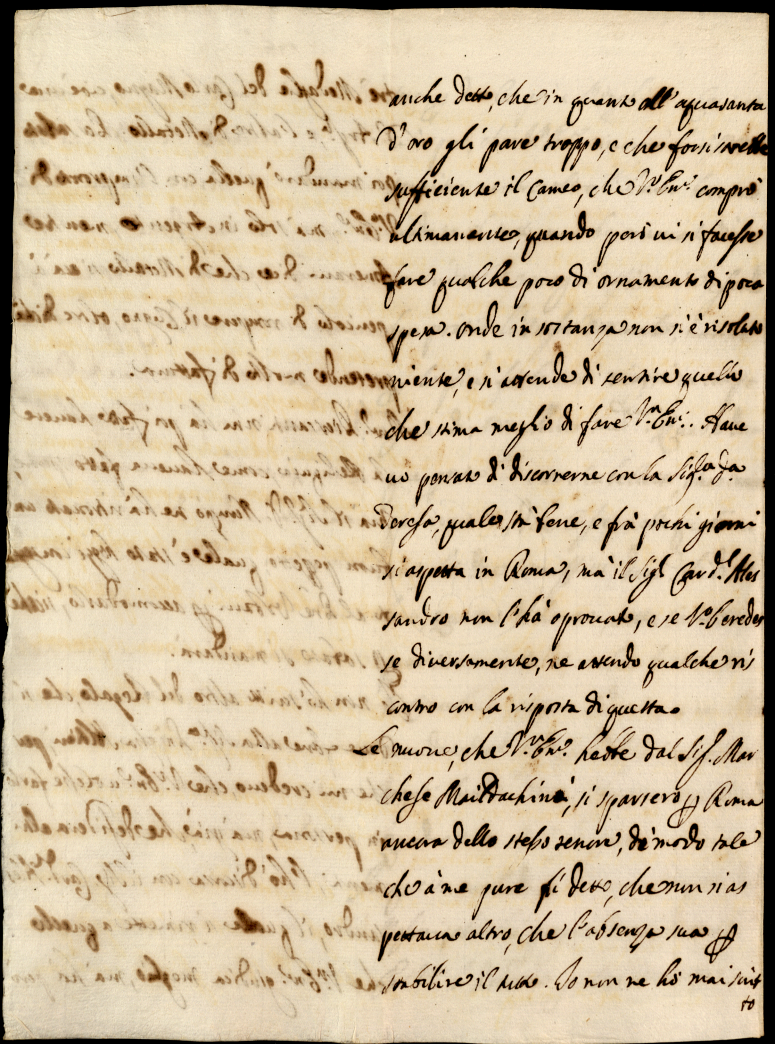 anche detto, che in quanto all'aquasanta
d'oro gli pare troppo, e che forsi sarebbe
sufficiente il Cameo, che V.ra Em.a comprò
ultimamente, quando però vi si facesse
fare qualche poco di ornamento di poca
spesa. Onde in sostanza non si è risoluto
niente, e si attende di sentire quello
che stima meglio di fare V.ra Em.a. Have
vo pensato di discorrerne con la Sig.ra D.a
Teresa, quale stà bene, e frà pochi giorni
si aspetta in Roma, mà il Sig.r Card.l Ales
sandro non l'hà aprovato, e se V.a E. credes
se diversamente, ne attendo qualche ris
contro con la risposta di questa.
Le nuove, che V.ra Em.a hebbe dal Sig.r Mar
chese Maidachini, si sparsero p Roma
ancora dello stesso tenore, di modo tale
che à me pure fù detto, che non si as
pettava altro, che l'absenza sua p
stabilire il tutto. Io non ne hò mai scrit
to